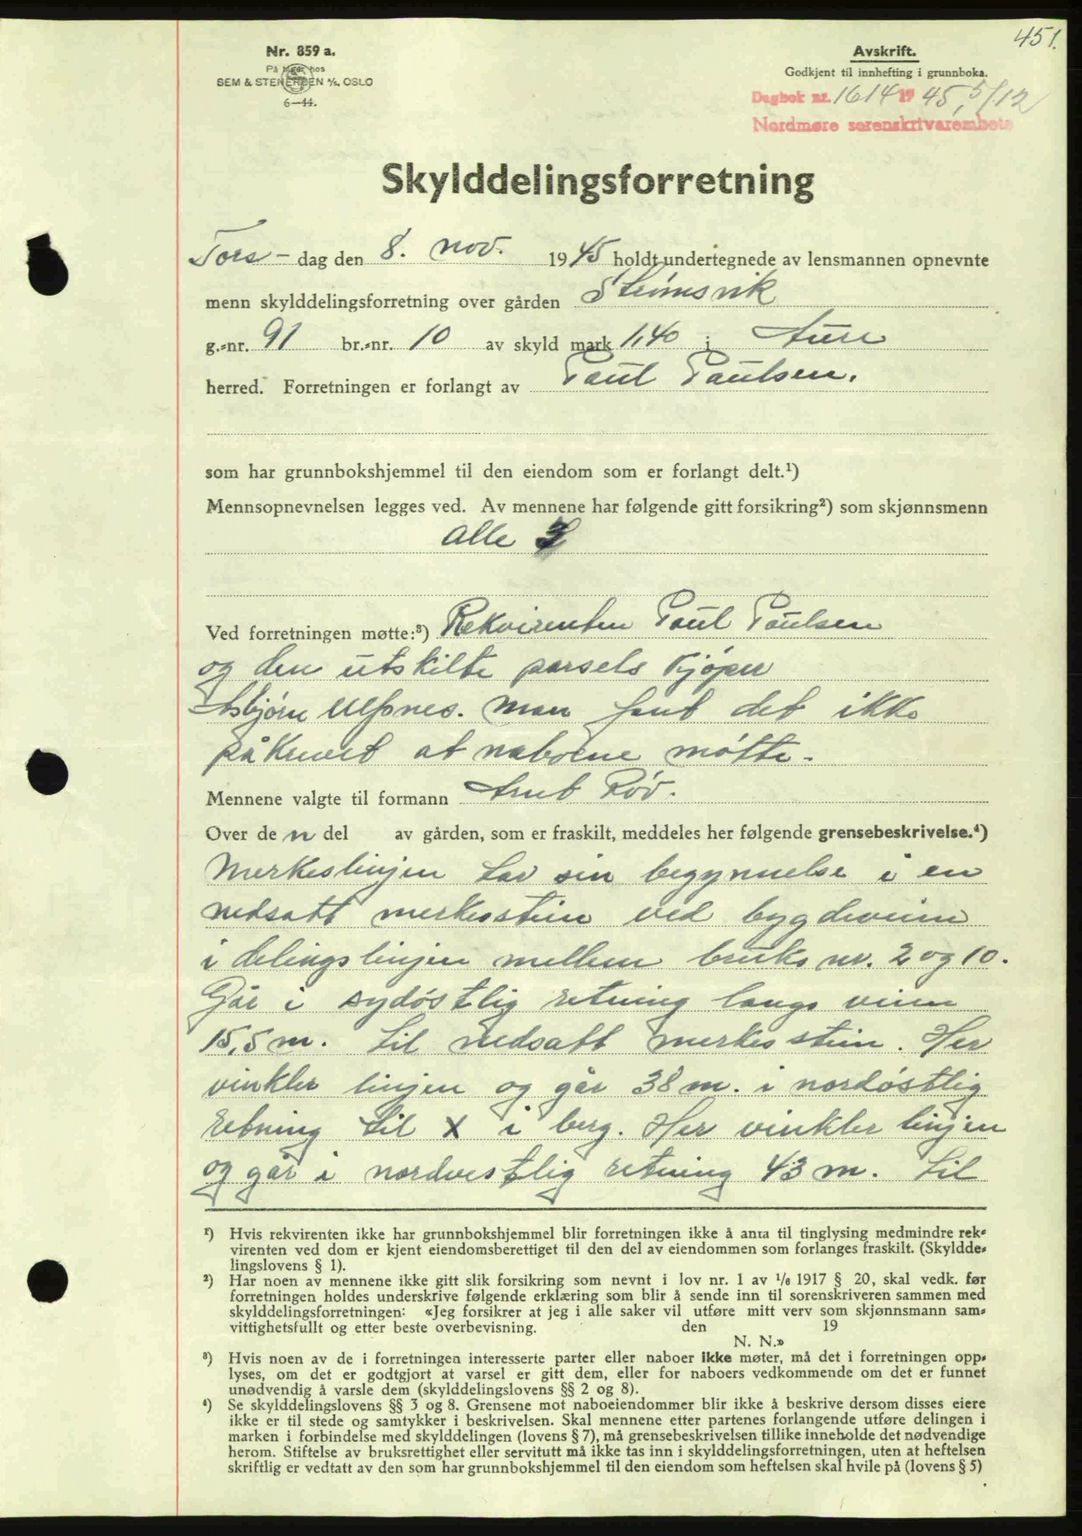 451.
Nr. 859 a.
På lager hos
SEM & STENERSEN A/S, OSLO
6—44.
Avskrift.
Godkjent til innhefting i grunnboka.
Dagbok nr. 1614 19 45, 5/12
Nordmøre sorenskrivarembete
Skylddelingsforretning
Tors- dag den 8. nov. 1945 holdt undertegnede av lensmannen opnevnte
menn skylddelingsforretning over gården Steinsvik
g.-nr. 91 br.-nr. 10 av skyld mark 1,40 i Aure
herred. Forretningen er forlangt av Paul Paulsen.
som har grunnbokshjemmel til den eiendom som er forlangt delt.¹)
Mennsopnevnelsen legges ved. Av mennene har følgende gitt forsikring²) som skjønnsmenn
alle 3
Ved forretningen møtte:³) Rekvirenten Paul Paulsen
og den utskilte parsels kjøper
Asbjørn Ulfsnes. Man fant det ikke
påkrevet at naboene møtte.
Mennene valgte til formann Arnt Røv.
Over de n del av gården, som er fraskilt, meddeles her følgende grensebeskrivelse.⁴)
Merkeslinjen tar sin begynnelse i en
nedsatt merkesstein ved bygdeveien
i delingslinjen mellem bruks nr. 2 og 10.
Går i sydøstlig retning langs veien
15,5 m. til nedsatt merkesstein. Her
vinkler linjen og går 38 m. i nordøstlig
retning til X i berg. Her vinkler linjen
og går i nordvestlig retning 43 m. til
¹) Hvis rekvirenten ikke har grunnbokshjemmel blir forretningen ikke å anta til tinglysing medmindre rek-
virenten ved dom er kjent eiendomsberettiget til den del av eiendommen som forlanges fraskilt. (Skyldde-
lingslovens § 1).
²) Har noen av mennene ikke gitt slik forsikring som nevnt i lov nr. 1 av 1/6 1917 § 20, skal vedk. før
forretningen holdes underskrive følgende erklæring som blir å sende inn til sorenskriveren sammen med
skylddelingsforretningen: «Jeg forsikrer at jeg i alle saker vil utføre mitt verv som skjønnsmann sam-
vittighetsfullt og etter beste overbevisning. den 19
N. N.»
³) Hvis noen av de i forretningen interesserte parter eller naboer ikke møter, må det i forretningen opp-
lyses, om det er godtgjort at varsel er gitt dem, eller for naboers vedkommende om det er funnet
unødvendig å varsle dem (skylddelingslovens §§ 2 og 8).
⁴) Se skylddelingslovens §§ 3 og 8. Grensene mot naboeiendommer blir ikke å beskrive dersom disses eiere
ikke er til stede og samtykker i beskrivelsen. Skal mennene etter partenes forlangende utføre delingen i
marken i forbindelse med skylddelingen (lovens § 7), må grensebeskrivelsen tillike inneholde det nødvendige
herom. Stiftelse av bruksrettighet eller servitutt må ikke tas inn i skylddelingsforretningen, uten at heftelsen
skriftlig er vedtatt av den som har grunnbokshjemmel til den eiendom som heftelsen skal hvile på (lovens § 5)